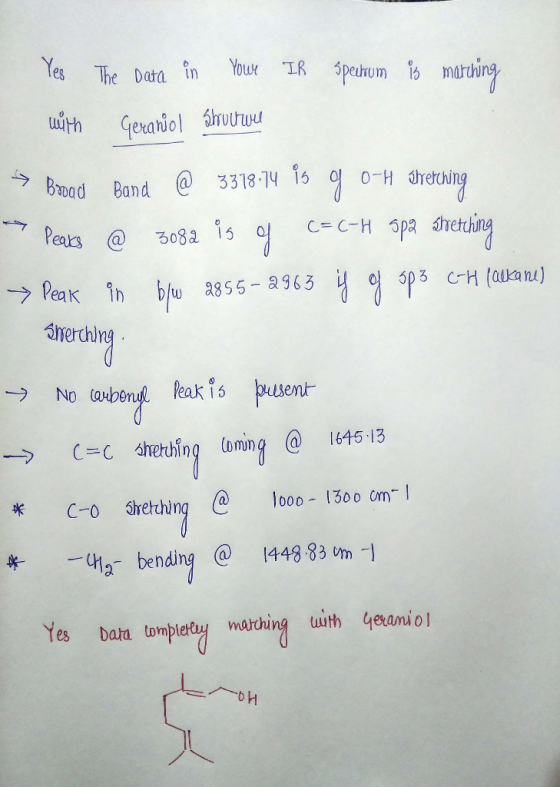 Yes The Data in Your IR Spectrum is matching
with Geraniol Structure
→ Broad Band @ 3378.74 is of O-H stretching
→ Peaks @ 3082 is of C=C-H sp2 stretching
→ Peak in b/w 2855-2963 if of sp3 C-H (alkane)
stretching.
→ No carbonyl Peak is present
→ C=C stretching coming @ 1645.13
* C-O stretching @ 1000-1300 cm-1
* -CH2- bending @ 1448.83 cm-1
Yes Data completley matching with Geraniol
OH